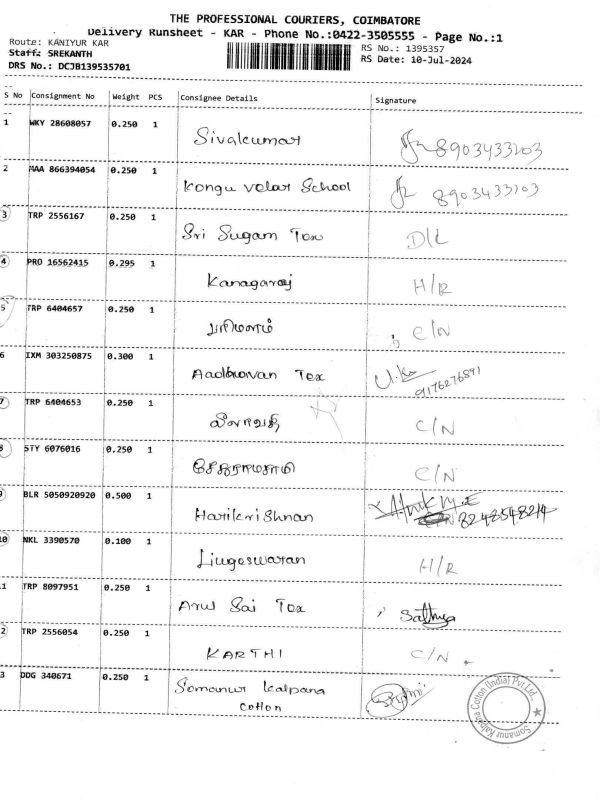 THE PROFESSIONAL COURIERS, COIMBATORE
Delivery Runsheet - KAR - Phone No.:0422-3505555 - Page No.:1
Route: KANIYUR KAR
RS No.: 1395357
Staff: SREKANTH
RS Date: 10-Jul-2024
DRS No.: DCJB139535701
S No Consignment No Weight PCS Consignee Details Signature
1 WKY 28608057 0.250 1 Sivakumar 8903433203
2 MAA 866394054 0.250 1 Kongu velar School 8903433203
3 TRP 2556167 0.250 1 Sri Sugam Tex D/L
4 PRO 16562415 0.295 1 Kanagaraj H/R
5 TRP 6404657 0.250 1 C/N
6 IXM 303250875 0.300 1 Aadhavan Tex 9176276891
7 TRP 6404653 0.250 1 C/N
8 STY 6076016 0.250 1 C/N
9 BLR 5050920920 0.500 1 Harikrishnan
10 NKL 3390570 0.100 1 Lingeswaran H/R
1 TRP 8097951 0.250 1 Arul Sai Tex Sathya
2 TRP 2556054 0.250 1 KARTHI C/N
3 DDG 340671 0.250 1 Somanur kalpana
cotton
Somanur Kalpana Cotton (India) Pvt Ltd.